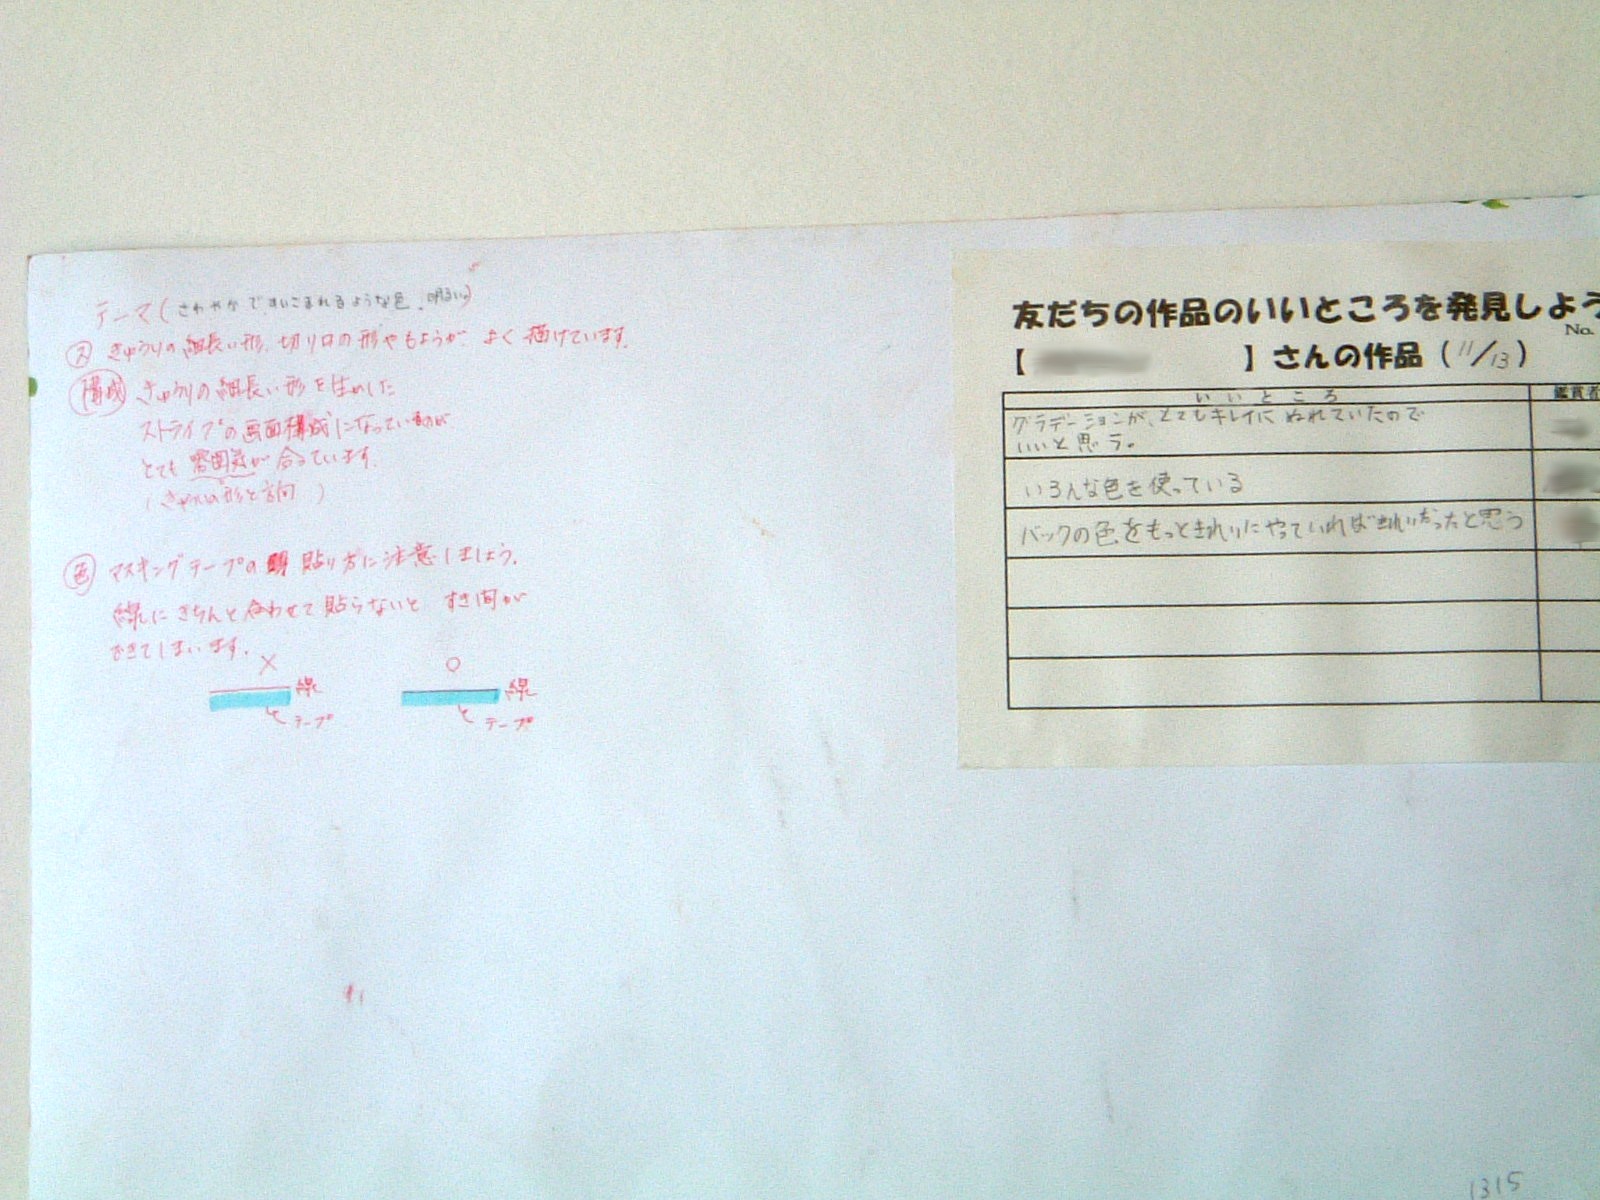 テーマ(さわやかで、すいこまれるような色、明るい)
ス きゅうりの細長い形、切り口の形やもようが、よく描けています。
構成 きゅうりの細長い形を生かした
ストライプの画面構成になっているのが
とても雰囲気が合っています。
(きゅうりの形と方向)
色 マスキングテープの貼り方に注意しましょう。
線にきちんと合わせて貼らないと すき間が
できてしまいます。
× ○
線 線
テープ テープ
友だちの作品のいいところを発見しよう
No.
【 】さんの作品(11/13)
いいところ 鑑賞者
グラデーションが、とてもキレイにぬれていたので
いいと思う。
いろんな色を使っている
バックの色をもっときれいにやっていればきれいだったと思う
1315